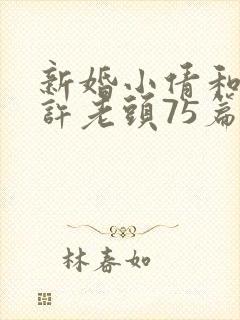 新婚小倩和
許老頭75篇
林春如